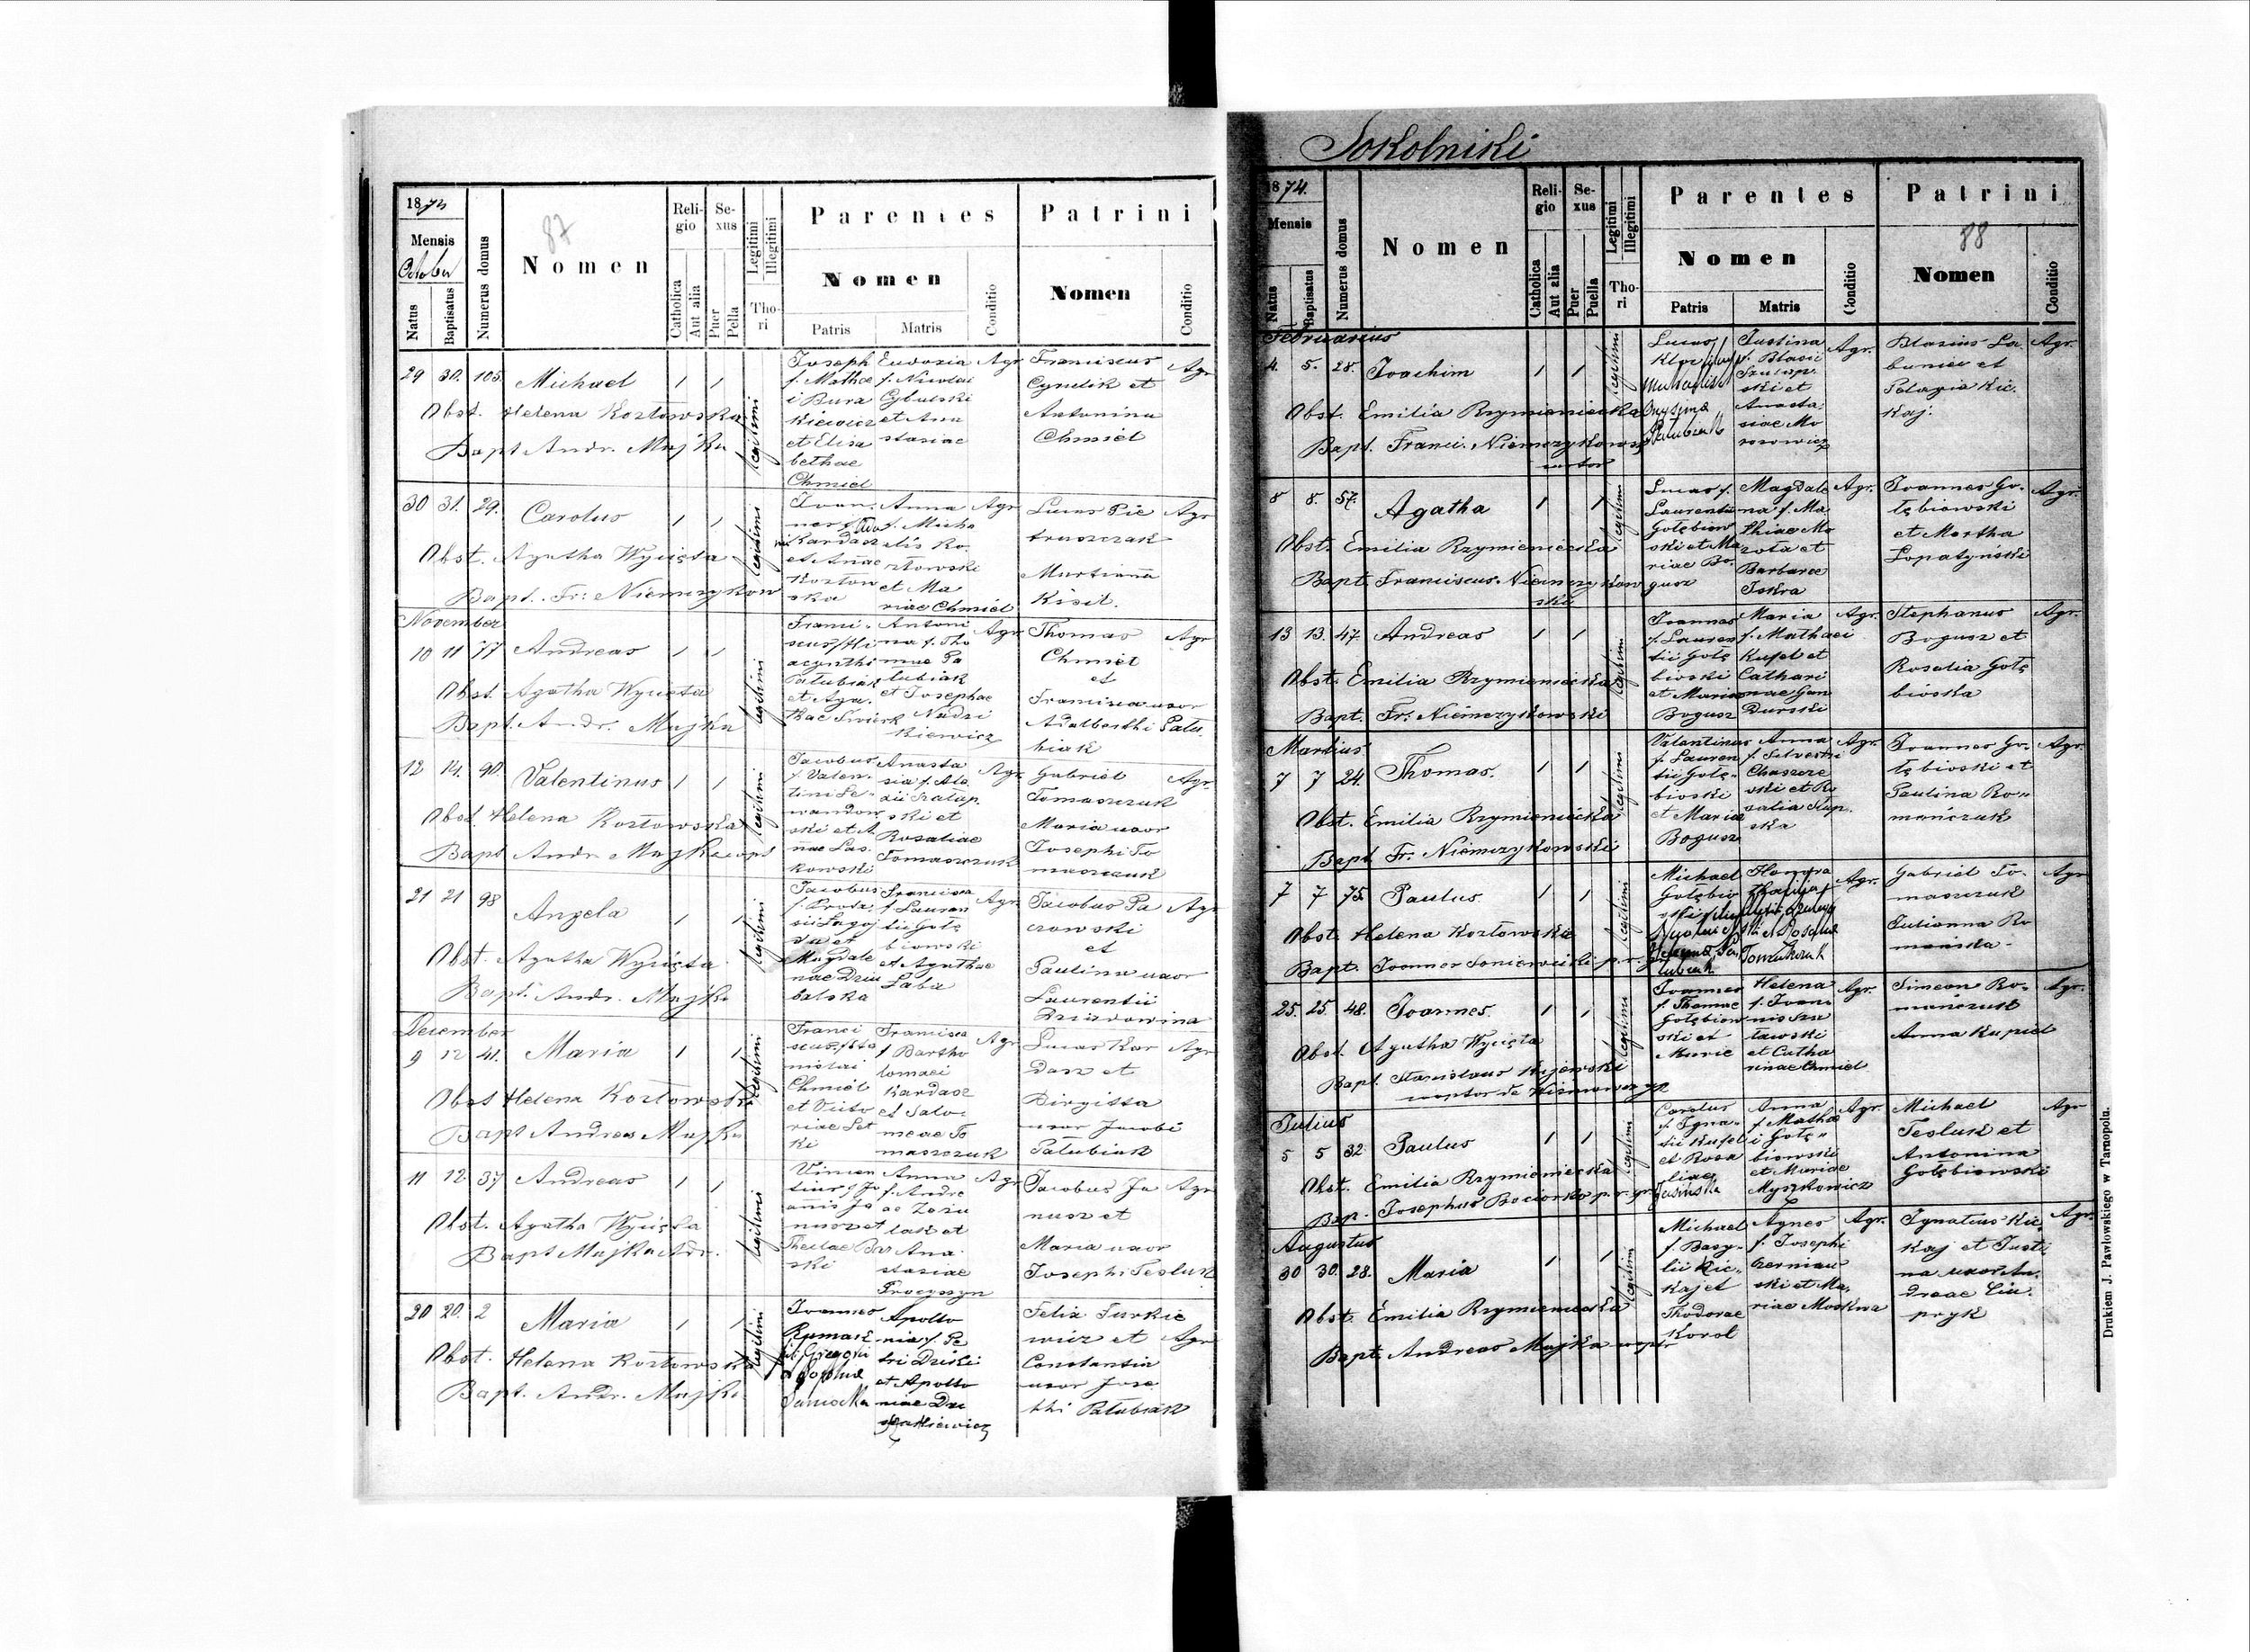 1874
Mensis
October
Natus
Baptisatus
Numerus domus
87
Nomen
Religio
Catholica
Aut alia
Sexus
Puer
Pella
Legitimi
Illegitimi
Thori
Parentes
Nomen
Patris
Matris
Conditio
Patrini
Nomen
Conditio
29 30. 105. Michael 1 1
Obst. Helena Kozłowska
Bapt Andr. Majka
legitimi
Joseph
f. Mathæ
i Bura
kiewicz
et Elisa
bethae
Chmiel
Eudoxia
f. Nicolai
Cybulski
et Ana
stasiae
Agr
Franciscus
Cymlik et
Antonina
Chmiel
Agr
30 31. 29. Carolus 1 1
Obst. Agatha Wycięta
Bapt. Fr: Niemczykow
legitimi
Kardasz
et Annae
Kozłow
ska
Anna
f. Micha
elis Ko.
złowski
et Ma
riae Chmiel
Agr
Lucas Pie
truszczak
Martianna
Kisil.
Agr
November
10 11 77 Andreas 1 1
Obst Agatha Wycięta
Bapt. Andr. Majka
legitimi
Franci-
scus f Hi
acynthi
Pałubiak
et Aga.
thae Swierk
Antoni
na f. Tho
mae Pa
łubiak
et Josephae
Nudzi
kiewicz
Agr
Thomas
Chmiel
et
Francisca uxor
Adalberthi Pału
biak
Agr
12 14. 90. Valentinus 1 1
Obst. Helena Kozłowska
Bapt Andr Majka
legitimi
Jacobus
f. Valen-
tini Le-
wandow
ski et A
nnae Las.
kowski
Anasta
sia f. Ale
xii Szatup.
ski et
Rosaliae
Tomaszczuk
Agr
Gabriel
Tomaszczuk
Maria uxor
Josephi To
maszczuk
Agr.
21 21 98 Angela 1 1
Obst. Agatha Wycięta
Bapt. Andr. Majka
legitimi
Jacobus
et
Magdale
nae Dziu
balska
Francisca
f. Lauren
tii Gołę
biowski
et Agathae
Łaba
Agr
Jacobus Pa
czowski
et
Paulina uxor
Laurentii
Agr
December
9 12 41. Maria 1 1
Obst Helena Kozłowska
Bapt Andreas Majka
legitimi
Franci
scus f Sta
nislai
Chmiel
et Victo
riae Set
ki
Francisca
f Bartho
lomaei
Kardasz
et Salo-
meae To
maszczuk
Agr
Lucas Kar
dasz et
Birgitta
uxor Jacobi
Pałubiak
Agr
11 12 37 Andreas 1 1
Obst. Agatha Wycięta
Bapt Majka Adr.
legitimi
Vincen
tius f Jo
anis Ja
nusz et
Theclae Bar
ski
Anna
f. Andre
ae Zaziu
lak et
Ana
stasiae
Procyszyn
Agr
Jacobus Ja
nusz et
Maria uxor
Josephi Tesluk
Agr
20 20. 2 Maria 1 1
Obst. Helena Kozłowska
Bapt. Andr. Majka
legitimi
Joannes
Rymak
fil. Gregorii
et Sophiae
Apollo
nia f. Pe
tri Dziki
et Apollo
niae
Felix Turkie
wicz et
Constantia
uxor Jose
phi Pałubiak
Agr
Sokolniki
1874.
Mensis
Natus
Baptisatus
Numerus domus
Nomen
Religio
Catholica
Aut alia
Sexus
Puer
Puella
Legitimi
Illegitimi
Thori
Parentes
Nomen
Patris
Matris
Conditio
Patrini
88
Nomen
Conditio
Februarius
4. 5. 28. Joachim 1 1
Obst. Emilia Rzymieniecka
Bapt. Franci. Niemczykowski
legitimi
Lucas
Justina
f. Blasii
ski et
Anasta
siae Mo
rozowicz
Agr.
Blasius Ła
buniec et
Pelagia Ku.
kaj.
Agr.
8 8. 57. Agatha 1 1
Obst. Emilia Rzymieniecka
Bapt. Franciscus. Niemczykow
ski
legitimi
Lucas f.
Laurentii
Gołębiow
ski et Ma
riae Bo.
gusz
Magdale
na f. Ma
thiae Mo
rota et
Barbarae
Iskra
Agr.
Joannes Go.
łębiowski
et Martha
Łopatyński
Agr.
13 13. 47. Andreas 1 1
Obst. Emilia Rzymieniecka
Bapt. Fr: Niemczykowski
legitimi
Joannes
f. Lauren
tii Gołę
biowski
et Mariae
Bogusz
Maria
f. Mathaei
Kufel et
Cathari
nae Gon
durski
Agr.
Stephanus
Bogusz et
Rosalia Gołę
biowska
Agr.
Martius
7 7 24. Thomas. 1 1
Obst. Emilia Rzymieniecka
Bapt Fr. Niemczykowski
legitimi
Valentinus
f. Lauren
tii Gołę-
biowski
et Mariae
Bogusz
Anna
f. Silvestri
ski et Ro
salia Słup.
ska
Agr.
Joannes Go.
łębiowski et
Paulina Ro-
mańczuk
Agr.
7 7 75. Paulus. 1 1
Obst. Helena Kozłowska
Bapt. Joannes
legitimi
Michael
Gołębio
ski
Honora
Tomczkzuk
Agr.
Gabriel To.
maszczuk
Julianna Ro
mańska.
Agr
25. 25. 48. Joannes. 1 1
Obst. Agatha Wycięta
Bapt. Stanislaus Kijewski
legitimi
Joannes
f. Thomae
Gołębiow
ski et
Marie
Helena
f. Joan
nis Szu
tawski
et Catha
rinae Chmiel
Agr.
Simeon Ro-
mańczuk
Anna Kupiel
Agr.
Julius
5 5 32 Paulus 1 1
Obst. Emilia Rzymieniecka
Bap. Josephus
legitimi
Carolus
f. Igna-
tii Kufel
et Rosa
liae
Jasińska
Anna
f. Mathæ
i Gołę-
biowski
et Mariae
Myszkowicz
Agr.
Michael
Tesluk et
Antonina
Gołębiowski
Agr
Augustus
30 30. 28. Maria 1 1
Obst. Emilia Rzymieniecka
Bapt. Andreas Majka
legitimi
Michael
f. Basy-
lii Kic-
kaj et
Thodorae
Korol
Agnes
f. Josephi
Czerniaw
ski et Ma.
riae Moskwa
Agr.
Ignatius Kic.
kaj et Justi
na uxor An.
dreae Ciu.
pryk
Agr.
Drukiem J. Pawłowskiego w Tarnopolu.